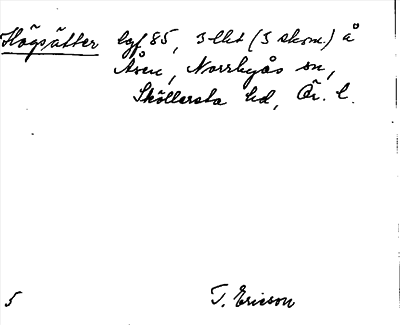 Högsätter lgf. 85, 3 lht (3 skom.) å
Åsen, Norrbyås sn,
Sköllersta hd, Ör. l.
5 T. Ericson